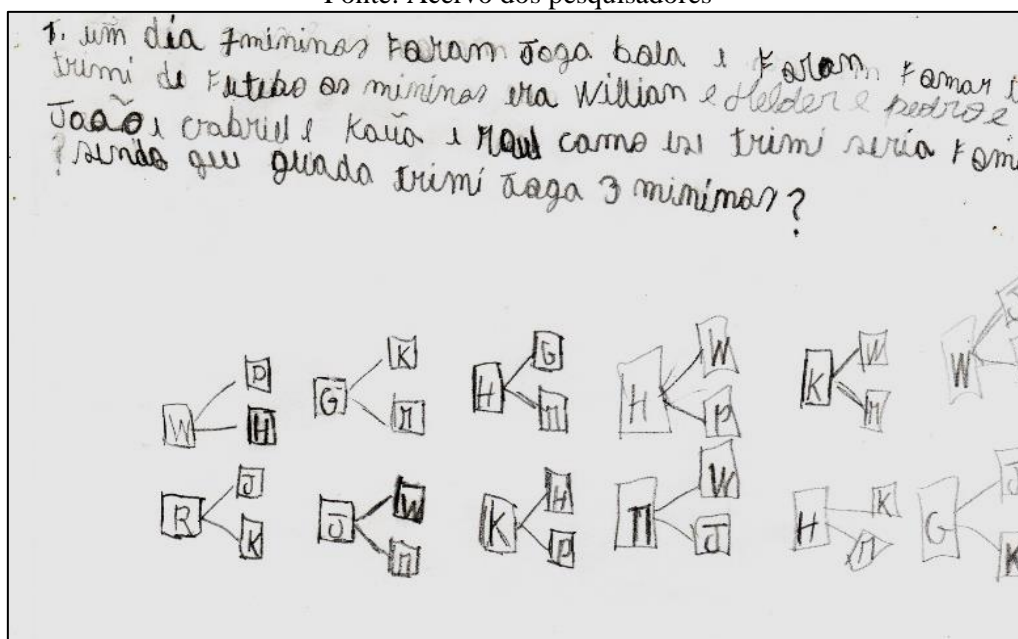 Fonte: Acervo dos pesquisadores
1. um día 7 mininos Foram Joga bola e Foram Fomar
trimi de Futebo os mininos era Willian e Helder e pedro e
João e Gabriel e Kauã e Raul como esi trimi seria Fom
? sendo que quada trimi Joga 3 mininos?
P K G W W J
W G H H K W
H M M P M
J W H W K J
R J K M H G
K M P J M K